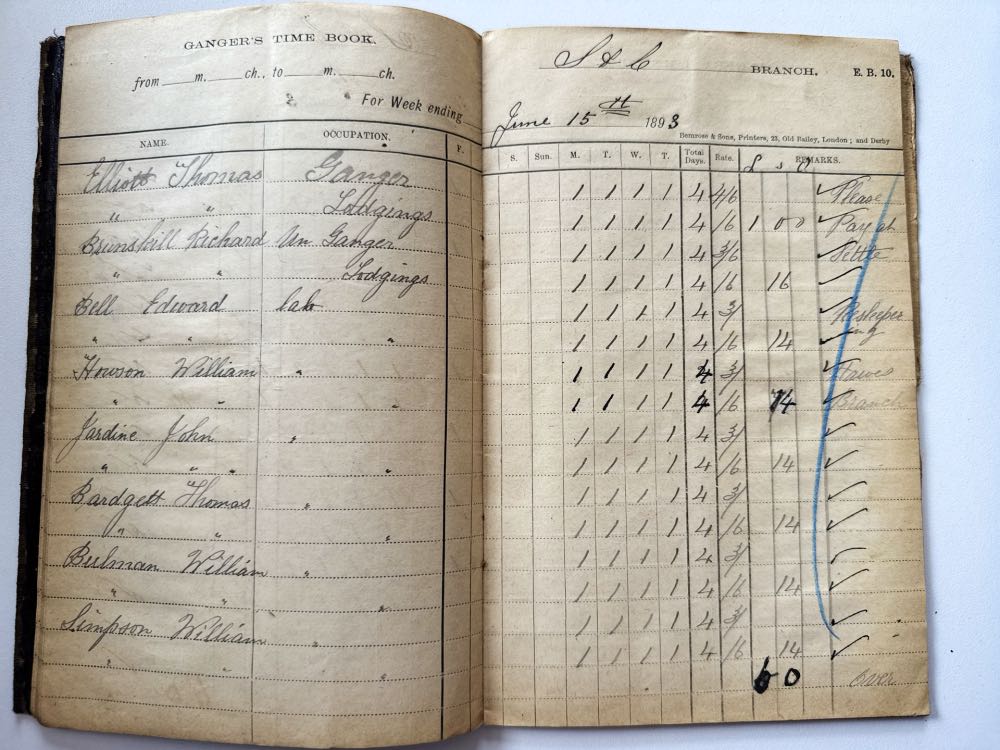 GANGER'S TIME BOOK.
from m. ch., to m. ch.
For Week ending
S & C BRANCH. E. B. 10.
June 15th 1893
Bemrose & Sons, Printers, 23, Old Bailey, London; and Derby
NAME. OCCUPATION. F. S. Sun. M. T. W. T. Total Days. Rate. £ s d REMARKS.
Elliott Thomas Ganger 1 1 1 1 4 4/6 ✓ Please
" " Lodgings 1 1 1 1 4 /6 1 0 0 ✓ Pay at
Brunskill Richard Un Ganger 1 1 1 1 4 3/6 ✓ Settle
" " Lodgings 1 1 1 1 4 /6 16 ✓
Bell Edward lab 1 1 1 1 4 3/ ✓
" " " " 1 1 1 1 4 /6 14 ✓ ng
Howson William " 1 1 1 1 4 3/ ✓ Hawes
" " " 1 1 1 1 4 /6 14 ✓ Branch
Jardine John " 1 1 1 1 4 3/ ✓
" " " " 1 1 1 1 4 /6 14 ✓
Bardgett Thomas " 1 1 1 1 4 3/ ✓
" " " 1 1 1 1 4 /6 14 ✓
Bulman William " 1 1 1 1 4 3/ ✓
" " " 1 1 1 1 4 /6 14 ✓
Simpson William " 1 1 1 1 4 3/ ✓
" " " 1 1 1 1 4 /6 14 ✓
6 0 over